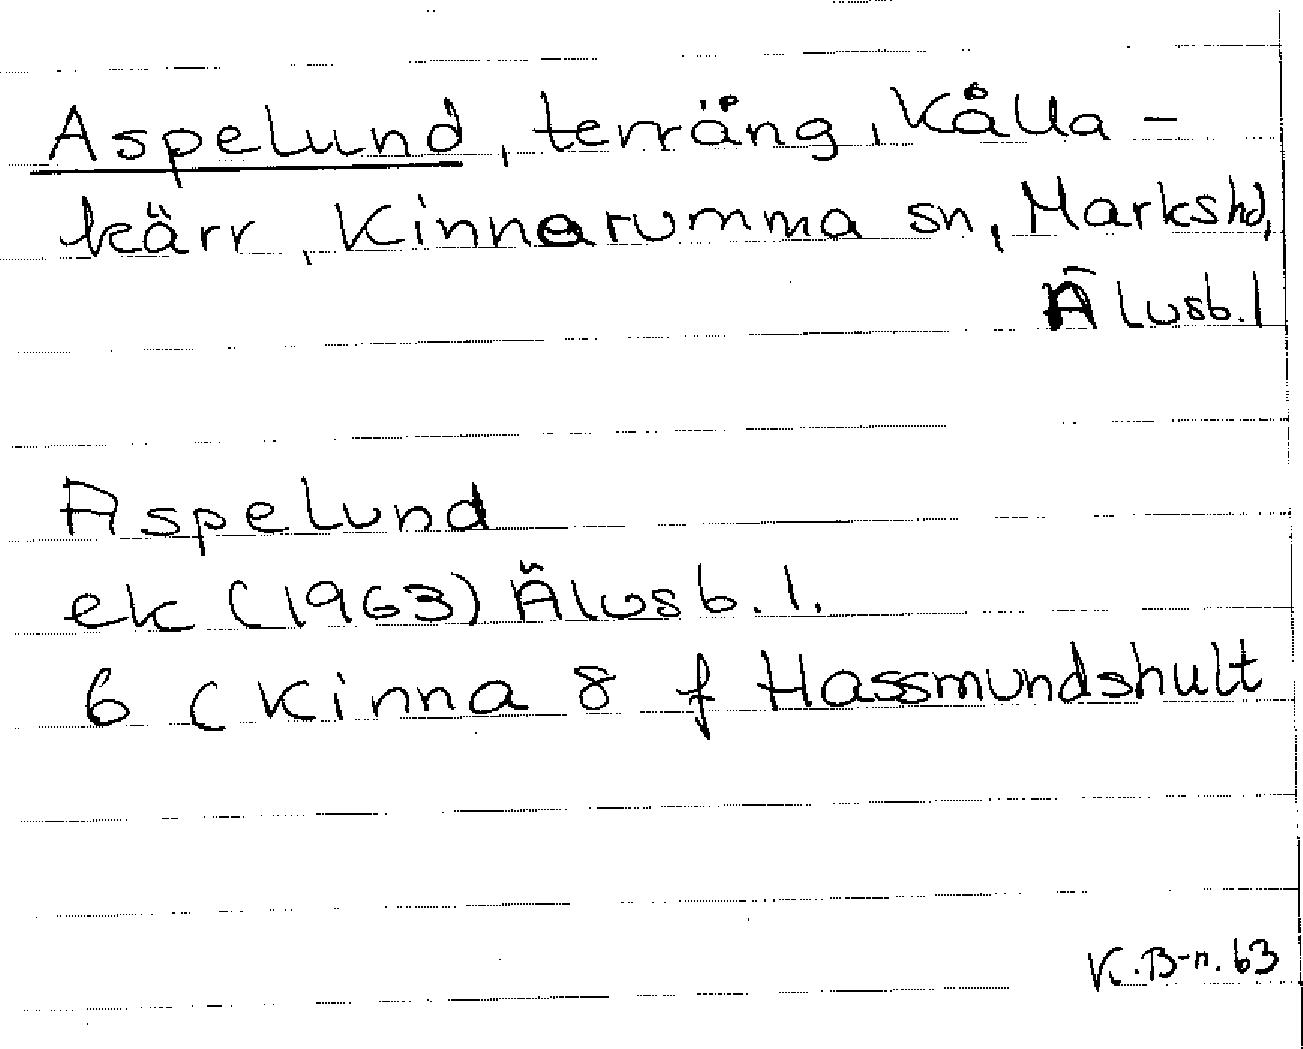 Aspelund, terräng, Kålla-
kärr, Kinnarumma sn, Marks hd,
Älvsb. l
Aspelund
ek (1963) Älvsb. l.
6 C Kinna 8 f Hassmundshult
K.B-n. 63